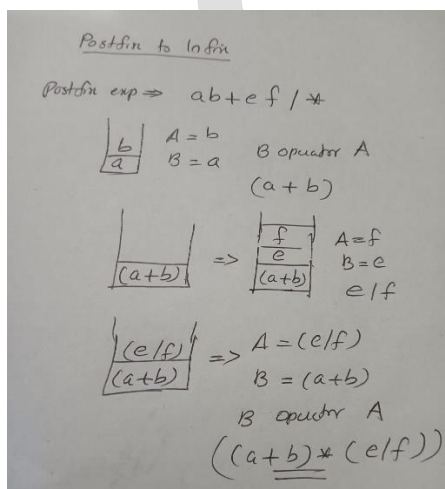 Postfix to Infix
Postfix exp ⇒ ab+ef/*
b A = b
a B = a B operator A
(a+b)
f A=f
(a+b) => e B=e
(a+b) e/f
(e/f) => A = (e/f)
(a+b) B = (a+b)
B operator A
((a+b)*(e/f))